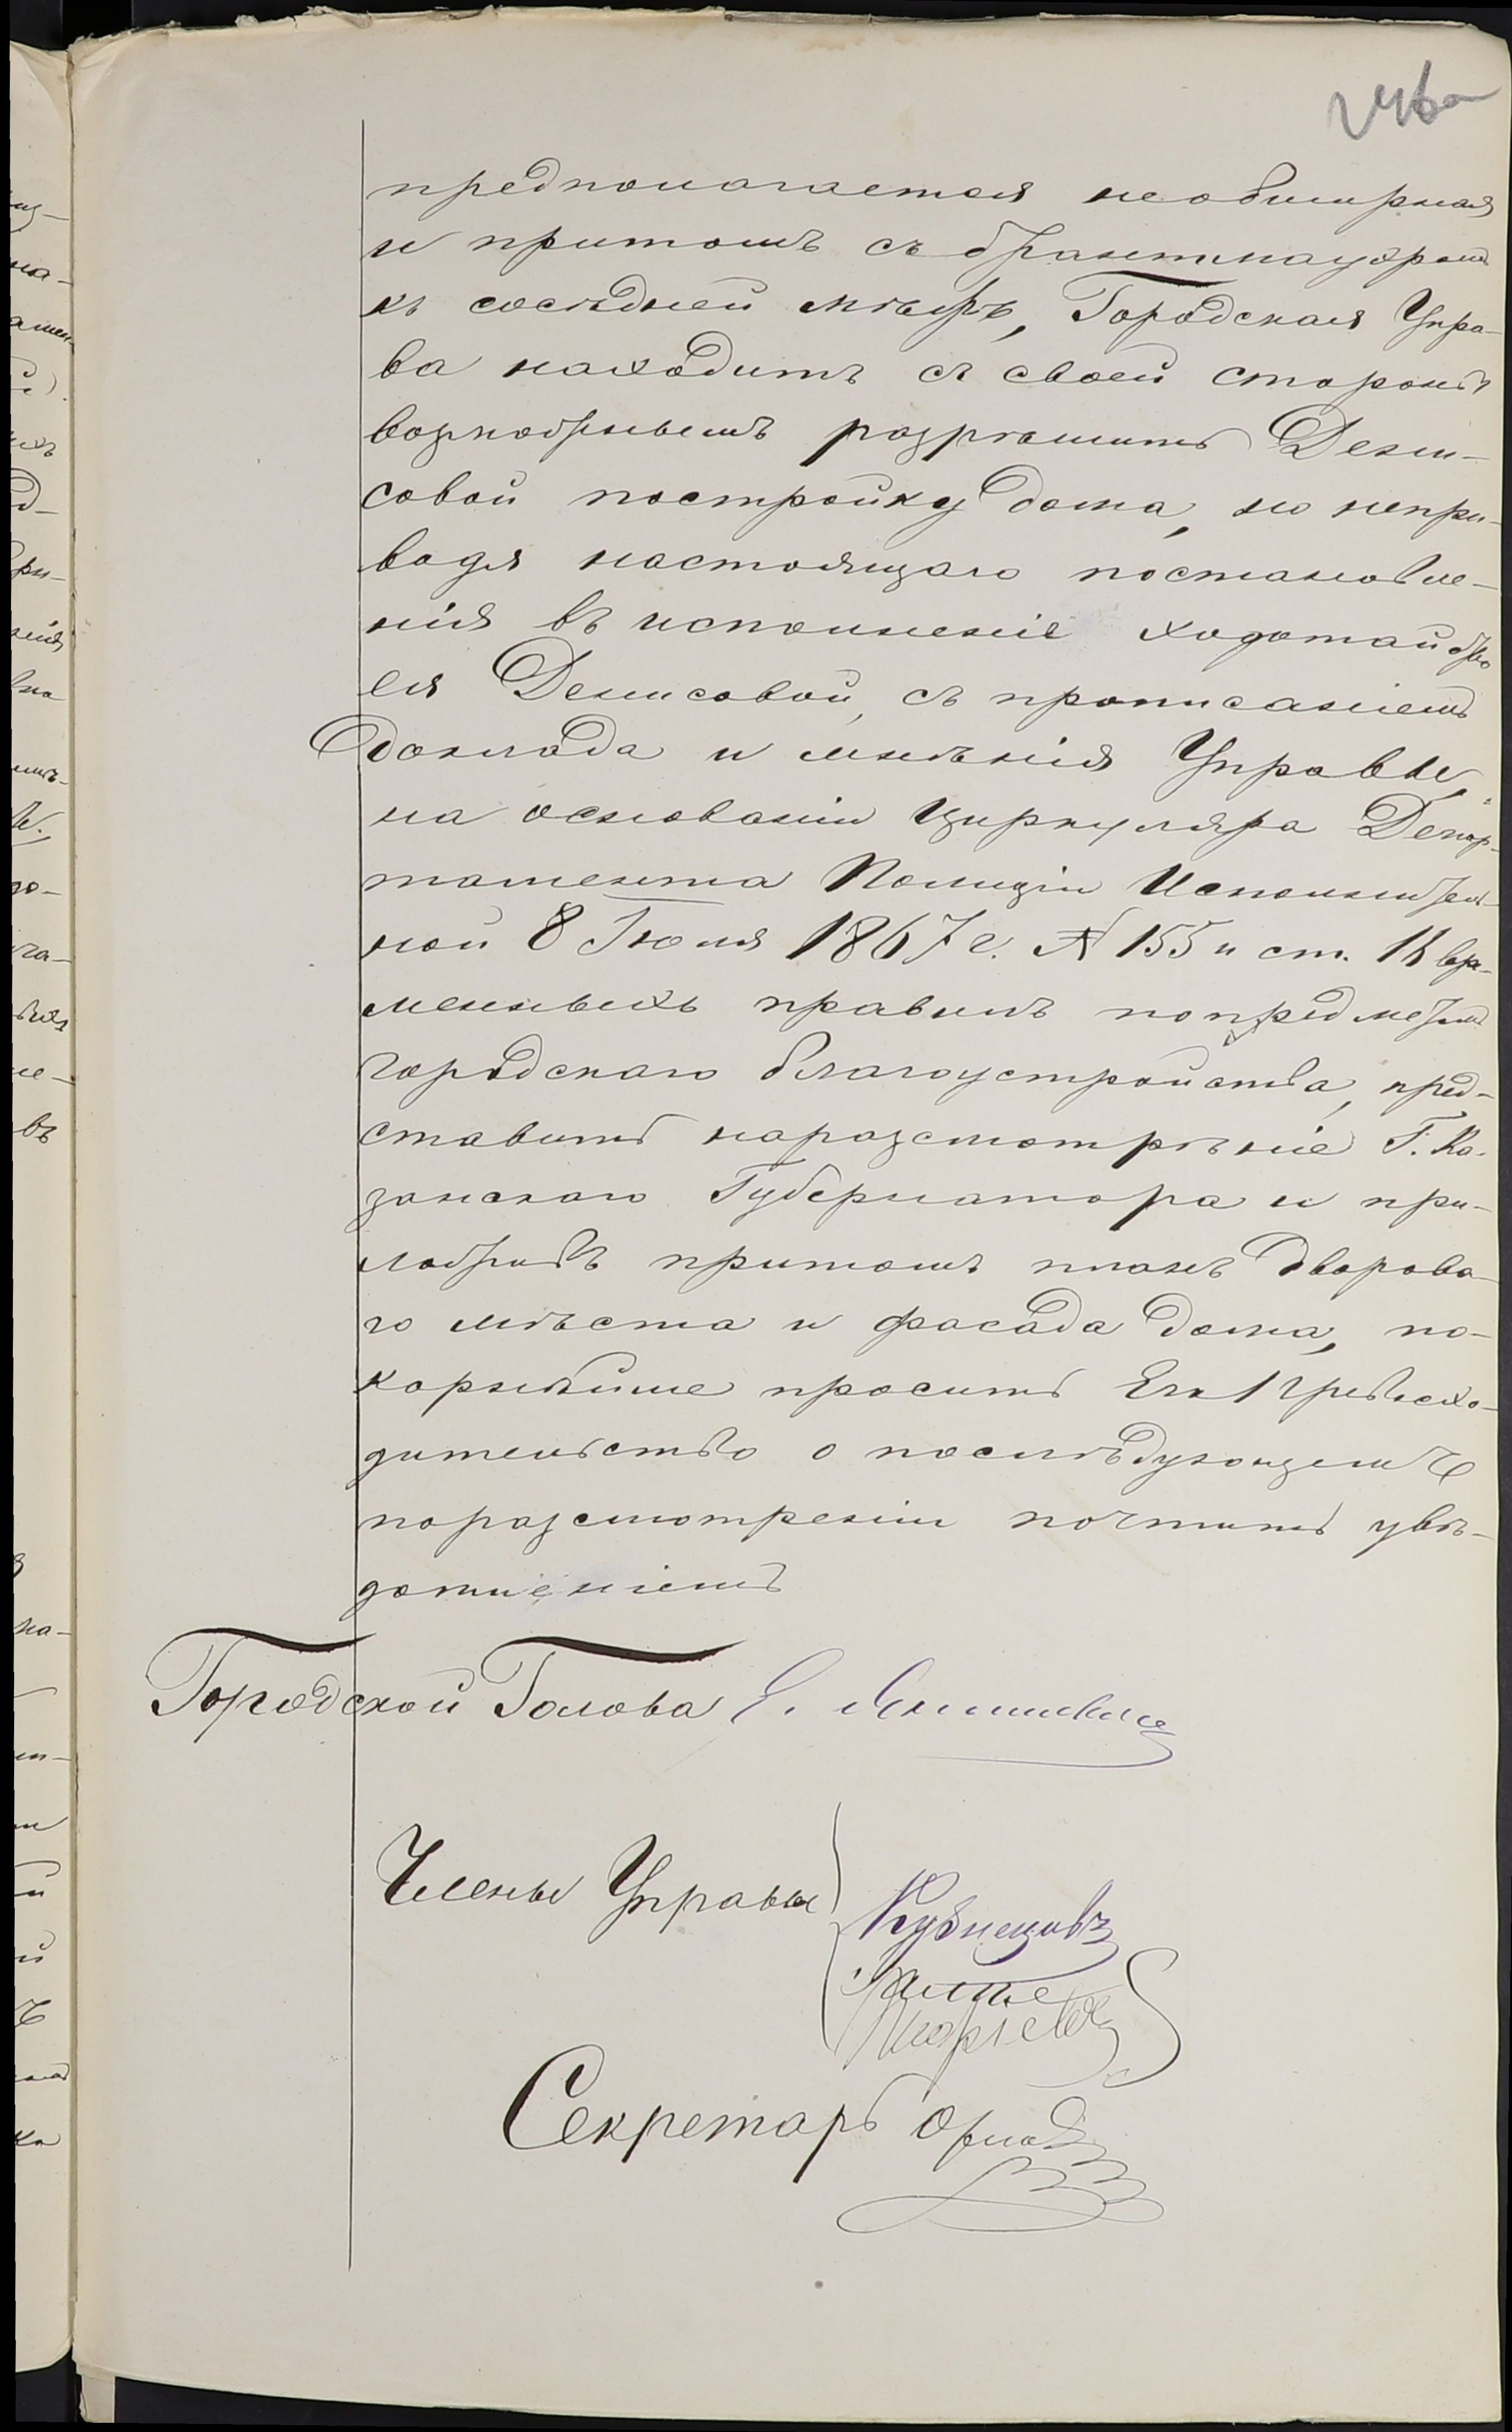 предполагается необширная
и притомъ съ брантмауэромъ
къ сосѣдней межѣ, Городская Упра-
ва находитъ съ своей стороны
возможнымъ разрѣшить Дени-
совой постройку дома, но непри-
водя настоящаго постановле-
нія въ исполненіе ходатайство
ея Денисовой, съ прописаніемъ
доклада и мнѣнія Управы,
на основаніи циркуляра Депар-
тамента Полиціи Исполнитель-
ной 8 Іюля 1867 г. № 155 и ст. вре-
менныхъ правилъ по предметамъ
городскаго благоустройства, пред-
ставить на разсмотрѣніе Г. Ка-
занскаго Губернатора и при-
ложивъ притомъ планъ дворова-
го мѣста и фасада дома, по-
корнѣйше просить Его Превосхо-
дительство о послѣдующемъ
поразсмотреніи почтить увѣ-
домленіемъ
Городской Голова Э. Янишевскій
Члены Управы
Кузнецовъ
Секретарь Орловъ